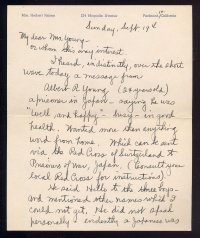 Mrs. Herbert Palmer
Piedmont, California
Sunday, Sept 19th
My dear Mrs. Young -
or whom this may interest.
I heard, indistinctly, over the short
wave today a message from
Albert R Young (28 years old)
a prisoner in Japan - saying he was
"Well and happy" - busy - in good
health. Wanted more than anything
word from home. Which can be sent
via the Red Cross of Switzerland to
Prisoners of War, Japan. (Consult your
local Red Cross for instructions).
He said Hello to the three boys -
and mentioned other names which I
could not get. He did not speak
personally - evidently a Japanese was